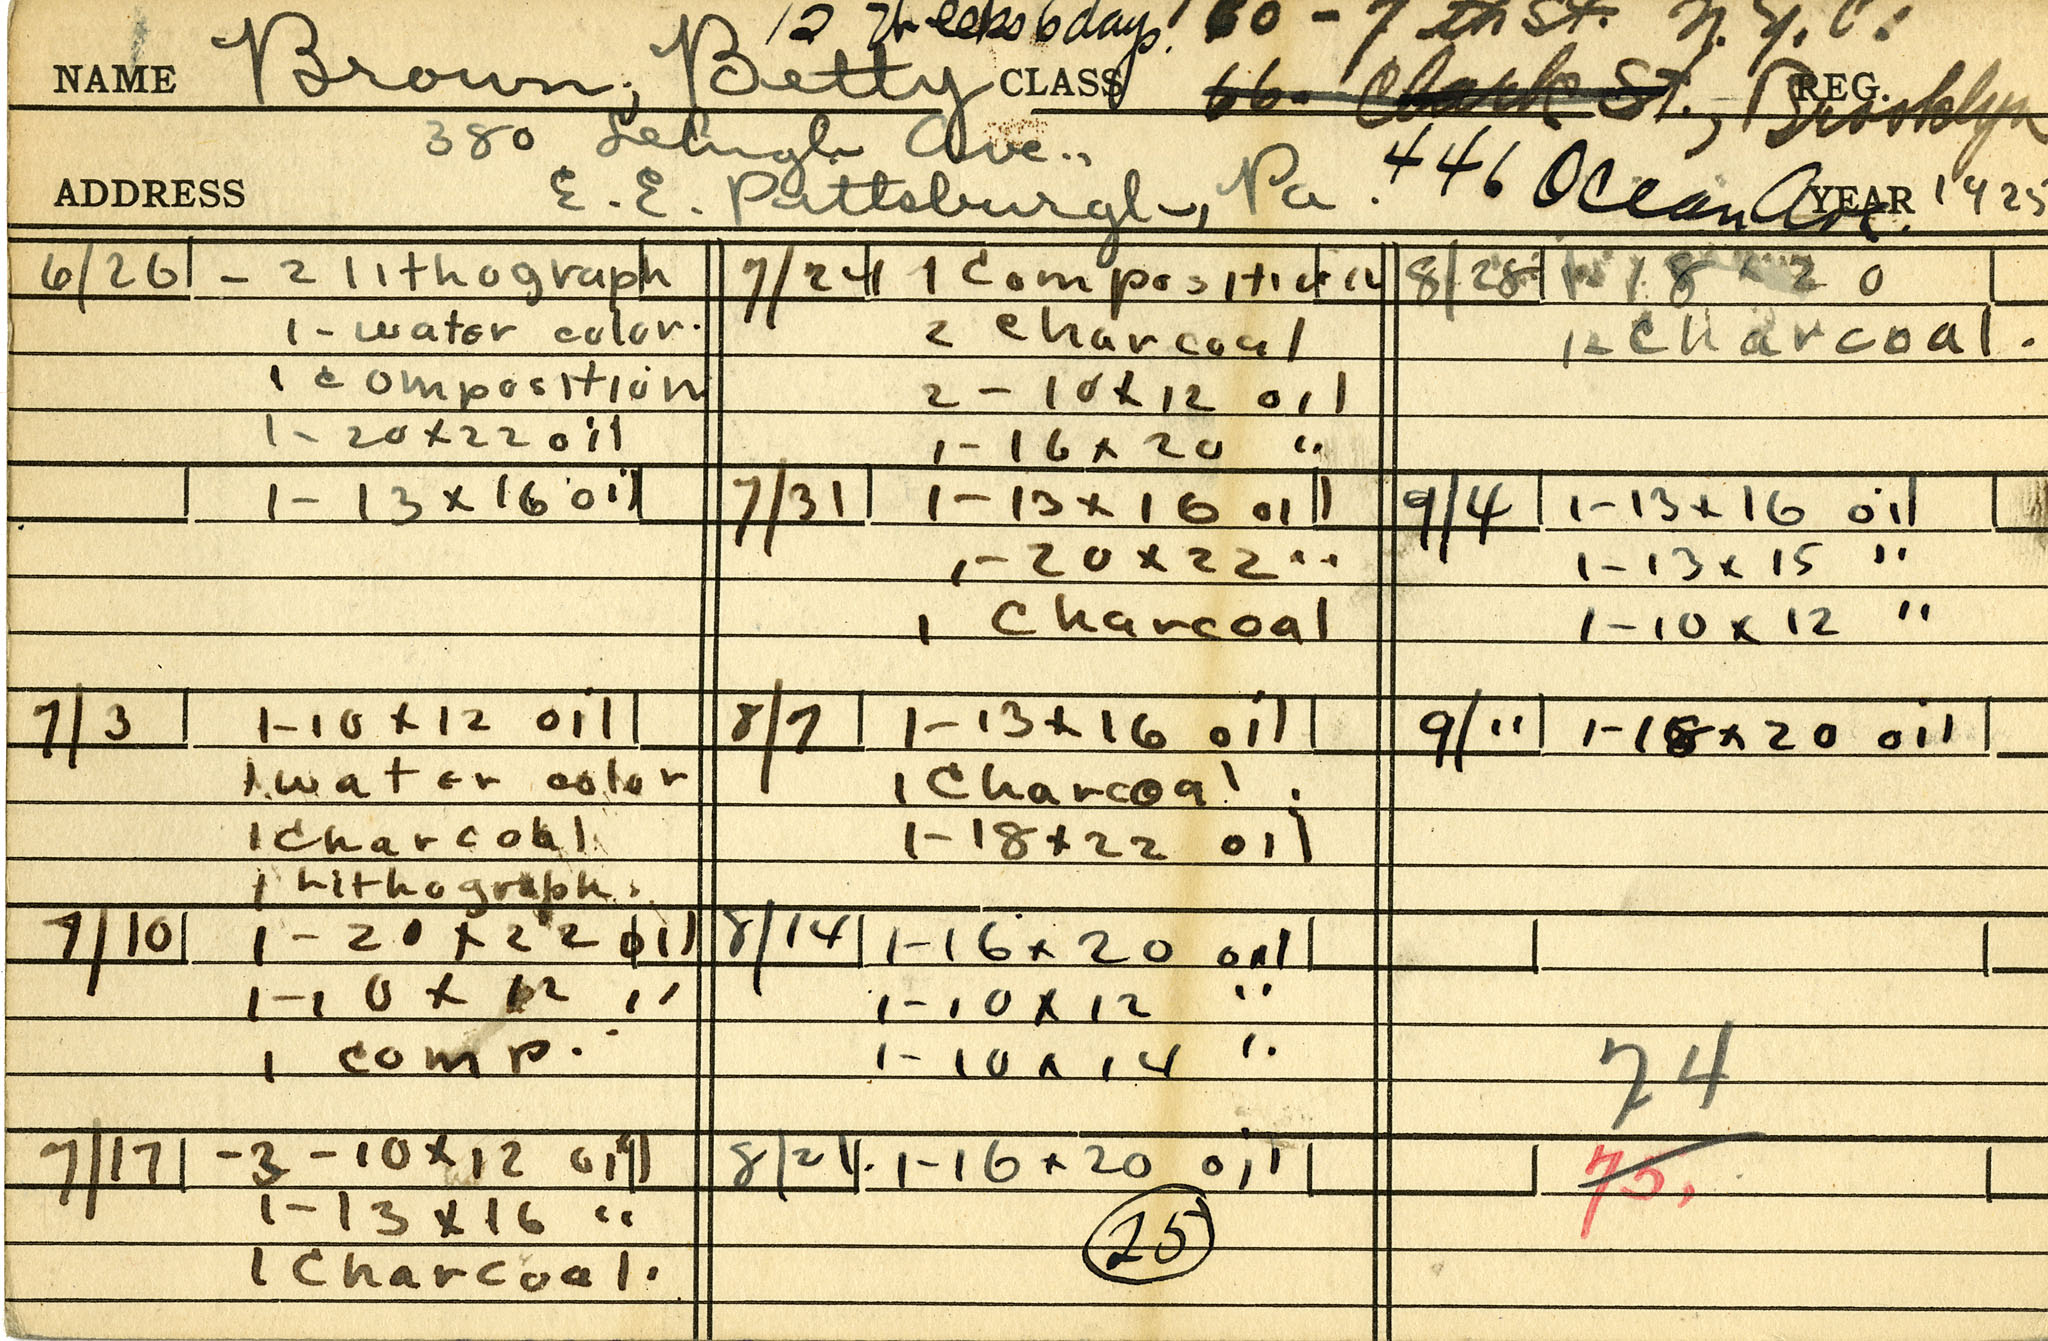 12 Weeks 6 days! 60 - 7th St. N.Y.C.
NAME Brown, Betty CLASS 66 Clark St., Brooklyn REG.
380 Lehigh Ave.,
ADDRESS E. E. Pittsburgh, Pa. 446 Ocean Ave. YEAR 1925
6/26 - 2 lithograph
1- water color.
1 composition
1- 20x22 oil
1- 13x16 oil
7/3 1-10x12 oil
1 water color
1 charcoal
1 Lithograph.
7/10 1-20x22 oil
1-10x12 "
1 comp.
7/17 -3-10x12 oil
1-13x16 "
1 Charcoal.
7/24 1 Composition
2 charcoal
2-10x12 oil
1-16x20 "
7/31 1-13x16 oil
1-20x22 "
1 Charcoal
8/7 1-13x16 oil
1 Charcoal.
1-18x22 oil
8/14 1-16x20 oil
1-10x12 "
1-10x14 "
8/21. 1-16x20 oil
25
8/28 18x20
Charcoal.
9/4 1-13x16 oil
1-13x15 "
1-10x12 "
9/11 1-18x20 oil
74
75.